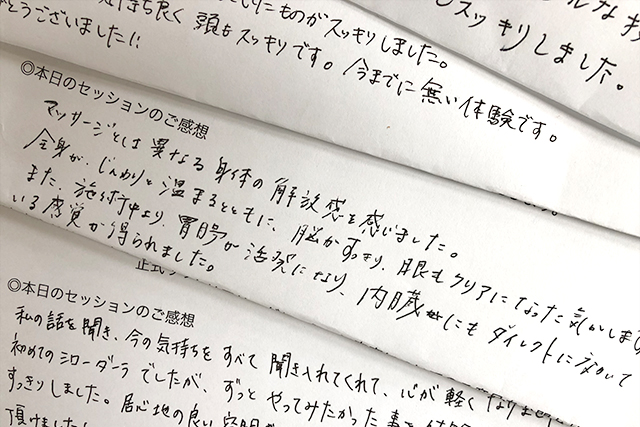 ていたものがスッキリしました。
気持ち良く頭もスッキリです。今までに無い体験です。
とうございました!!
スッキリしました。
◎本日のセッションのご感想
マッサージとは異なる身体の解放感を感じました。
全身が、じんわりと温まるとともに、脳がすっきり、眼もクリアになった気がします
また、施術中より、胃腸が活発になり、内臓にもダイレクトに
いる感覚が得られました。
正式
◎本日のセッションのご感想
私の話を聞き、今の気持ちをすべて聞き入れてくれて、心が軽くなりました
初めてのシローダーラでしたが、ずっとやってみたかった事を
すっきりしました。居心地の良い空間
頂けました